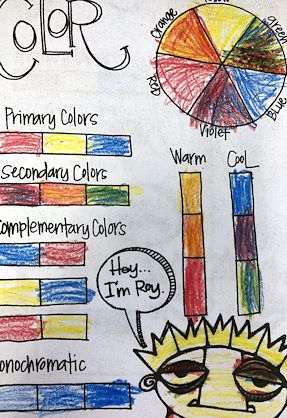 COLOR
Orange
Yellow
Green
Red
Blue
Violet
Primary Colors
Warm
Cool
Secondary Colors
omplementary Colors
Hey...
I'm Roy.
onochromatic